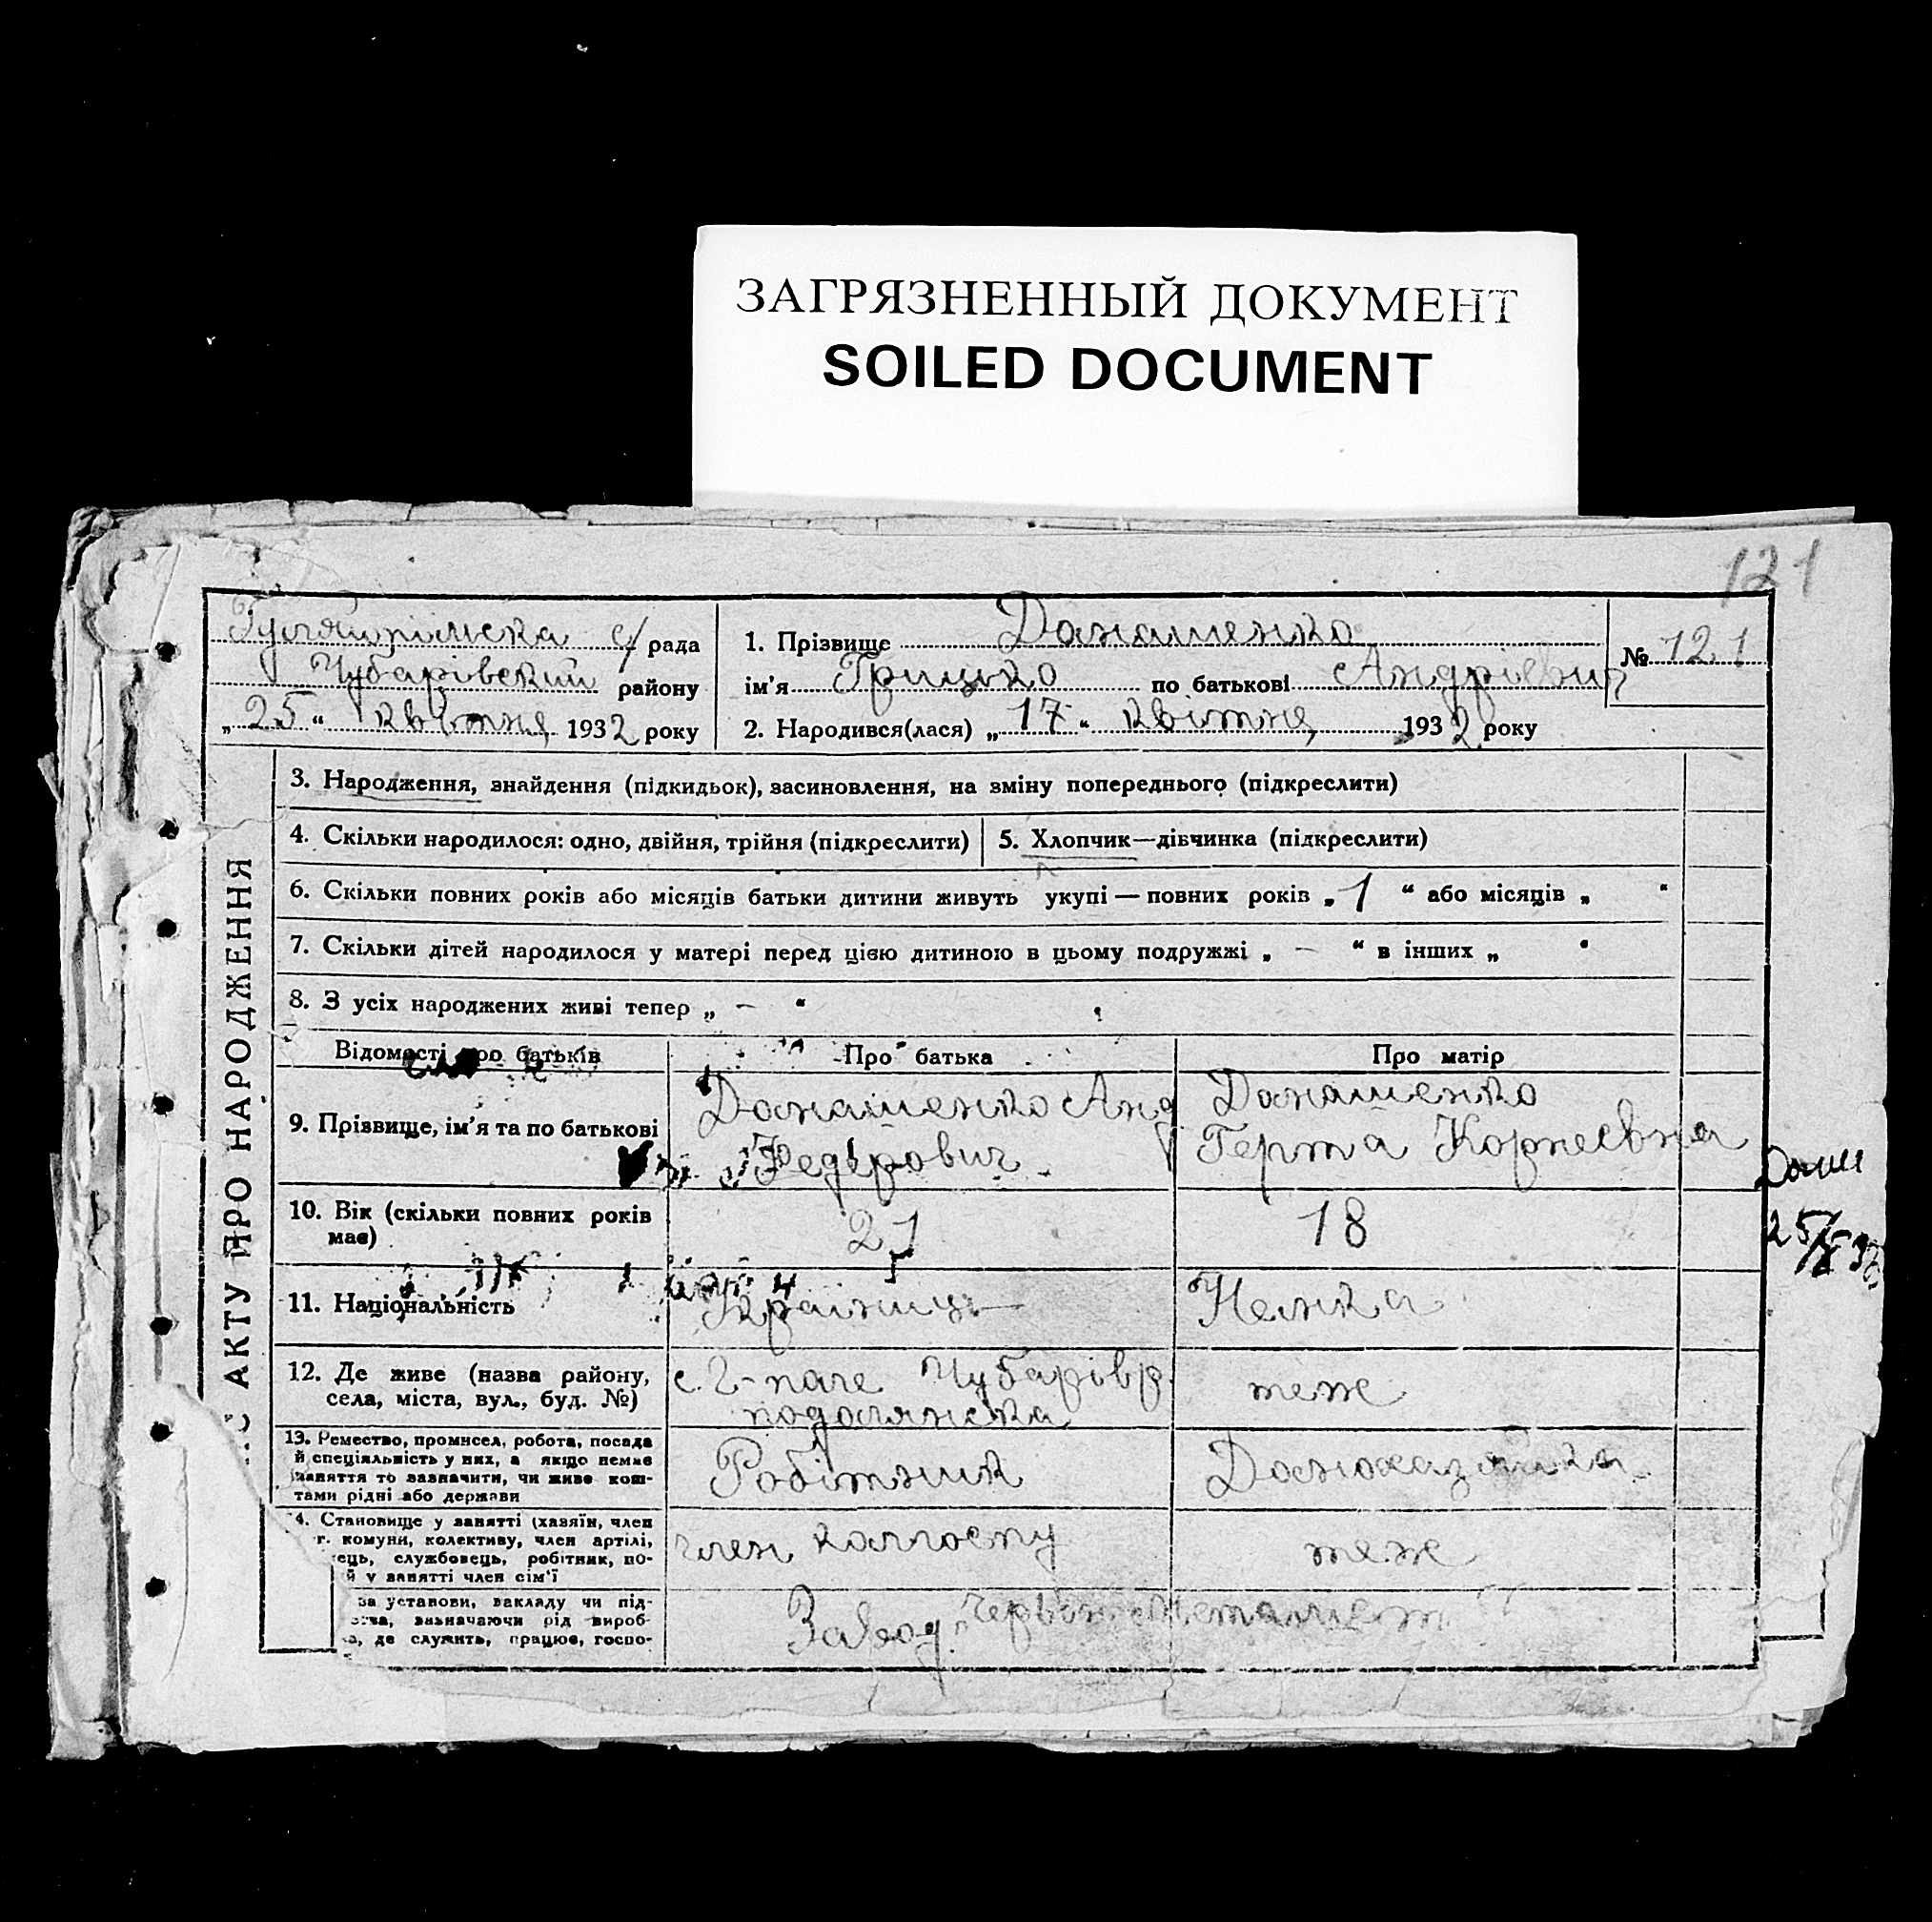 ЗАГРЯЗНЕННЫЙ ДОКУМЕНТ
SOILED DOCUMENT
121
Гуляйпільска с/рада
Чубарівский району
„25“ квітня 1932 року
1. Прізвище Данашенко
ім'я Грицько по батькові Андрієвич
№ 121
2. Народився(лася) „17“ квітня 1932 року
АКТУ ПРО НАРОДЖЕННЯ
3. Народження, знайдення (підкидьок), засиновлення, на зміну попереднього (підкреслити)
4. Скільки народилося: одно, двійня, трійня (підкреслити)
5. Хлопчик—дівчинка (підкреслити)
6. Скільки повних років або місяців батьки дитини живуть укупі — повних років „1“ або місяців „ “
7. Скільки дітей народилося у матері перед цією дитиною в цьому подружжі „ — “ в інших „ “
8. З усіх народжених живі тепер „ — “
Відомості про батьків
Про батька
Про матір
9. Прізвище, ім'я та по батькові
Данашенко Анд
Федорович
Данашенко
Герта Корнеевна
10. Вік (скільки повних років
має)
21
18
11. Національність
Українц
Немка
12. Де живе (назва району,
села, міста, вул., буд. №)
с. Г-поле Чубарів р.
подолянска
теж
13. Ремество, промисел, робота, посада
й спеціяльність у них, а якщо немає
заняття то зазначити, чи живе кош-
тами рідні або держави
Робітник
Домохазяйка
4. Становище у занятті (хазяїн, член
г. комуни, колективу, член артілі,
ець, службовець, робітник, по-
й у занятті член сім'ї
член колгоспу
теж
ва установи, закладу чи під-
ства, зазначаючи рід вироб-
а, де служить, працює, госпо-
Завод „Червон. Металист“